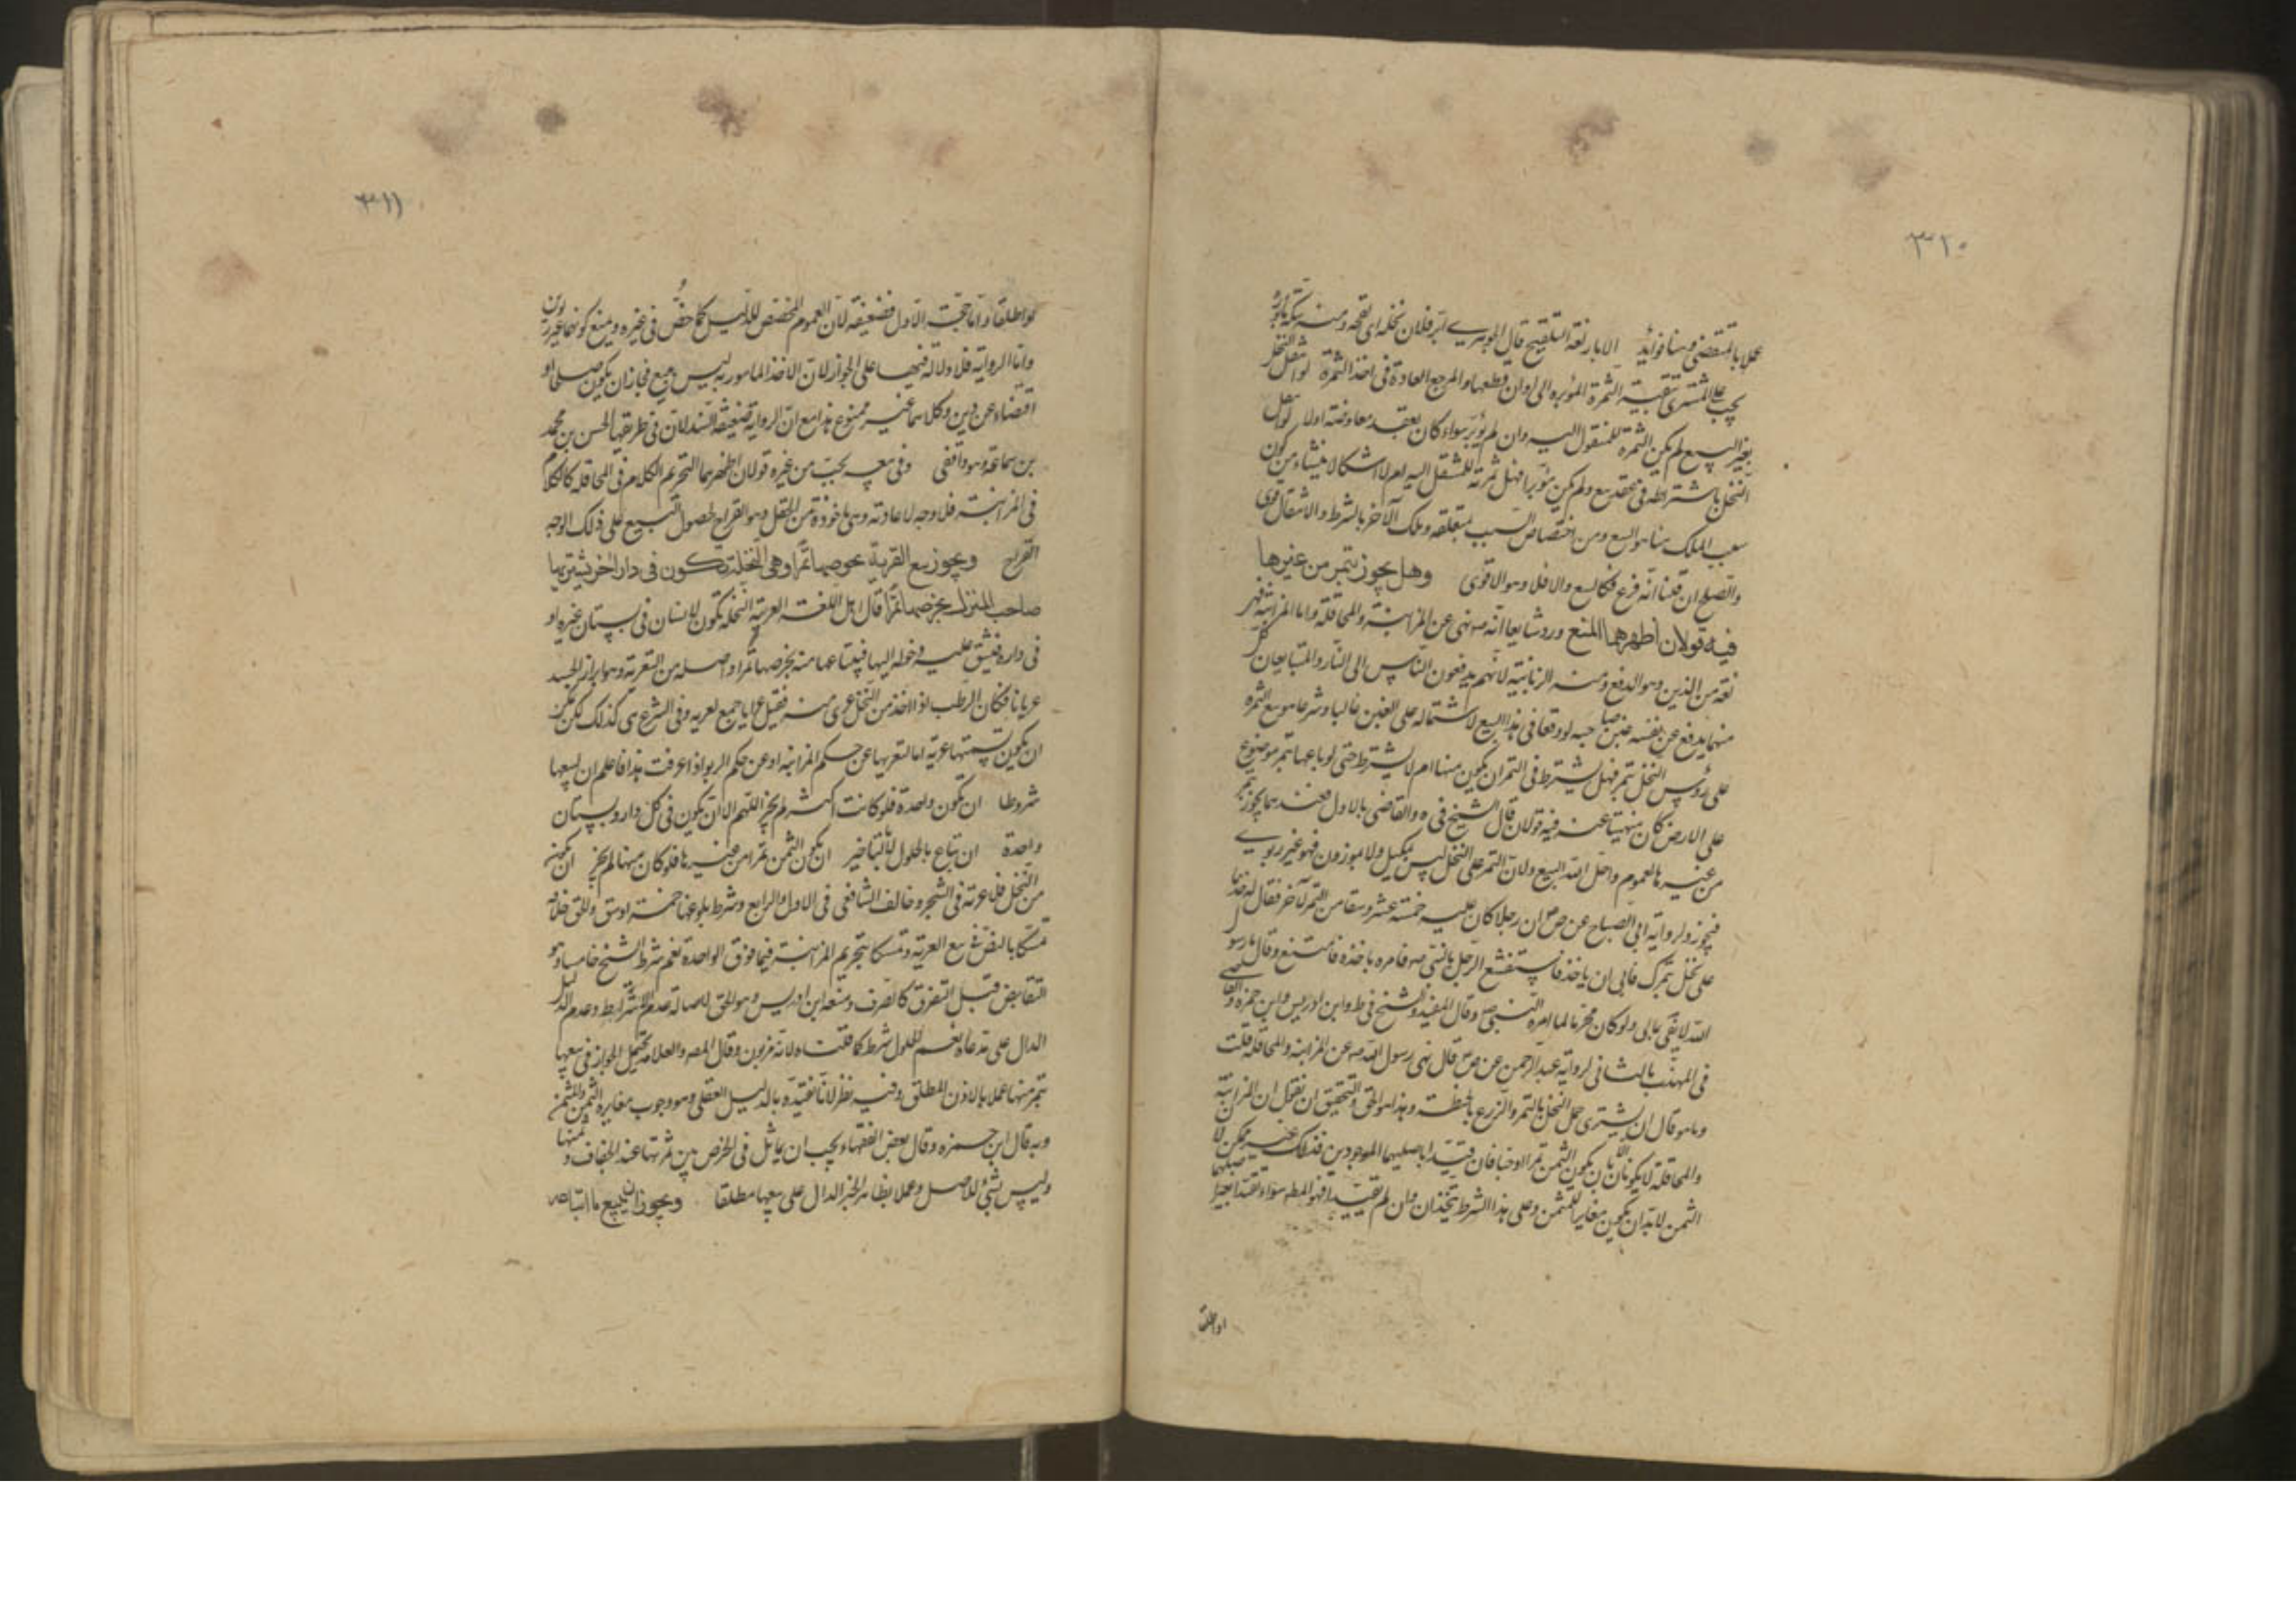 ٣١٠
عملا بالمقتضى وهنا فوائد الابار لغة التلقيح قال الجوهري ابر فلان نخله اى لقحه ومنه سكة مأبورة
يجب على المشترى تبقية الثمرة المؤبره الى اوان قطعها والمرجع العادة فى اخذ الثمرة لو انتقل النخل
بغير البيع لم يكن الثمرة للمنقول اليه وان لم يؤبر سواء كان بعقد معاوضة او لا لو نقل
النخل باشتراطه فى عقد بيع ولم يكن مؤبرا فهل ثمرته للمنتقل اليه ام لا اشكال ينشاء من كون
سبب الملك هنا هو البيع ومن اختصاص السبب بمتعلقه وملك الآخر بالشرط والانتقال
والصلح ان قلنا انه فرع فكالبيع والا فلا وهو الاقوى وهل يجوز بتمر من غيرها
فيه قولان اظهرهما المنع ورد شايعا انه ص نهى عن المزابنة والمحاقلة واما المزابنة فهى
لغة من الزبن وهو الدفع ومنه الزبانية لانهم يدفعون الناس الى النار والمتبايعان كل
منهما يدفع عن نفسه غبن صاحبه لو وقعا فى هذا البيع لاشتماله على الغبن غالبا وشرعا هو بيع الثمرة
على رؤس النخل بتمر فهل يشترط فى التمر ان يكون منها ام لا يشترط حتى لو باعها بتمر موضوع
على الارض كان منهيا عنه فيه قولان قال الشيخ فى ه والقاضى بالاول فعندهما يجوز بتمر
من غيرها لعموم واحل الله البيع ولان التمر على النخل ليس بمكيل ولا موزون فهو غير ربوى
فيجوز ولرواية ابى الصباح عن ص ان رجلا كان عليه خمسة عشر وسقا من التمر لآخر فقال له خذ ما
على نخلى بتمرك فابى ان ياخذ فاستشفع الرجل بالنبى ص فامره باخذه فامتنع وقال يا رسول
الله لا يفى بمالى ولو كان محرما لما امره النبى ص وقال المفيد والشيخ فى ط وابن ادريس وابن حمزة والقاضى
فى المهذب بالثانى لرواية عبد الرحمن عن ص قال نهى رسول الله ص عن المزابنة والمحاقلة قلت
وما هو قال ان يشترى حمل النخل بالتمر والزرع بالحنطة وهذا هو الحق والتحقيق ان نقول ان المزابنة
والمحاقلة لا يكونان الا بان يكون الثمن تمرا او حبا فان قيدا باصليهما الموجودين فذلك غير ممكن لان
الثمن لابد ان يكون مغايرا للمثمن وعلى هذا الشرط يتحدان وان لم تقيدا فهو المط سواء قيدا بغير اصليهما
او اطلقا
٣١١
لو اطلقا واما حجة الاول فضعيفة لان العموم المخصص للدليل كما خص فى غيره ويمنع كونها غير ربوى
واما الرواية فلا دلالة فيها على الجواز لان الاخذ المامور به ليس بيع فجاز ان يكون صلحا او
اقتضاء عن دين وكلاهما غير ممنوع هذا مع ان الرواية ضعيفة السند لان فى طريقها الحسن بن محمد
بن سماعة وهو واقفى وفى بيعه بحب من غيره قولان اظهرهما التحريم الكلام فى المحاقلة كالكلام
فى المزابنة فلا وجه لاعادته وهى ماخوذة من الحقل وهو القراح لحصول البيع على ذلك الوجه
القراح ويجوز بيع العرية بخرصها تمرا وهى النخلة تكون فى دار اخر يشتريها
صاحب المنزل بخرصها تمرا قال اهل اللغة العرية النخلة تكون لانسان فى بستان غيره او
فى داره فيشق عليه دخوله اليها فيبتاعها منه بخرصها تمرا واصله من التعرية وهو ابراز الجسد
عريانا فكان الرطب لو لا اخذ من النخل عرى منه فقيل عرايا جمع لعريه وفى الشرع هى كذلك لكن يمكن
ان يكون تسميتها عرية اما لتعريها عن حكم المزابنة او عن حكم الربو اذا عرفت هذا فاعلم ان لبيعها
شروطا ان تكون واحدة فلو كانت اكثر لم يجز اللهم الا ان تكون فى كل دار وبستان
واحدة ان تباع بالحلول لا بالتاخير ان يكون الثمن تمرا من غيرها فلو كان منها لم يجز ان يكون
من النخل فلا عرية فى الشجر وخالف الشافعى فى الاول والرابع وشرط بلوغها خمسة اوسق والحق خلافه
تمسكا بالنص فى بيع العرية وتمسكا بتحريم المزابنة فيما فوق الواحدة نعم شرط الشيخ خامسا وهو
التقابض قبل التفرق كالصرف ومنعه ابن ادريس وهو الحق لاصالة عدم الاشتراط وعدم الدليل
الدال على مدعاه نعم الحلول شرط كما قلناه لانه مزبون وقال المص والعلامة يحتمل الجواز فى بيعها
بتمر منها عملا بالاذن المطلق وفيه نظر لانا نقيده بالدليل العقلى وهو وجوب مغايرة الثمن والمثمن
وبه قال ابن حمزة وقال بعض الفقهاء يجب ان يماثل فى الخرص بين ثمرتها عند الجفاف وثمنها
وليس بشئ للاصل وعملا بظاهر الخبر الدال على بيعها مطلقا ويجوز ان يبيع ما ابتاعه